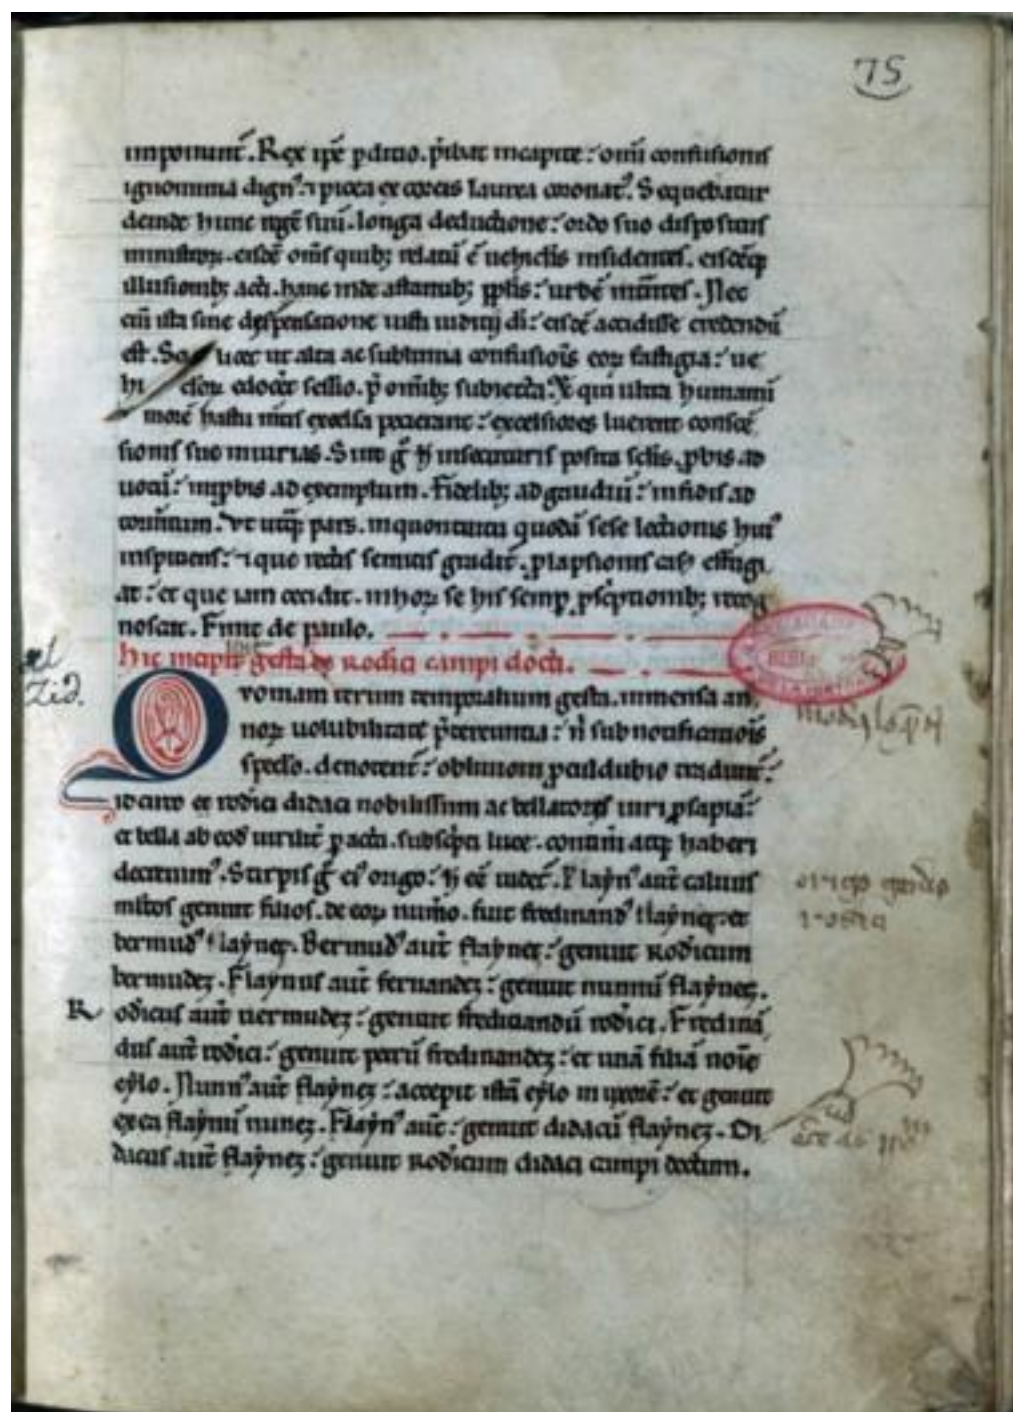 75
imponunt̄. Rex ip̄e p̄ditio. p̄ibat incapite: om̄i confusionis
ignominia dign᷒. ⁊ picea ex coreis laurea coronat᷒. Sequebatur
deinde hunc regē suū. longa deductione: ordo suo dispositus
ministroꝝ. eisdē om̄s quibꝫ relatū ē uehiclis insidentes. eisdēqꝫ
illusionibꝫ acti. hanc inde astantibꝫ pplis: urbē int̄ntes. Nec
cū ista sine dispensatione iusti iuditij di: eisdē accidisse credendū
est. uꝫ ut alta ac sublimia confusiōis eoꝝ fastigia: ue
hi edocer̄ sessio. p̄ om̄ibꝫ subiecta. Et qui ultra humanū
morē hastu m̄tis excelsa petierant: excelsiores luerent conscē
sionis sue iniurias. Sint ḡ h̄ insecuturis posita sclis. ꝓbis ad
uotū: inꝓbis ad exemplum. Fidelibꝫ ad gaudiū: infidis ad
tormentum. Vt utraqꝫ pars. inquontuitu quodā sese lectionis hui᷒
inspitiens: ⁊ que rectis semitis gradit̄. ꝓlapsionis cas᷒ effugi
at: et que iam cecidit. inhoꝝ se his semp̄ ꝓsc̄ptionibꝫ recog
noscat. Finit de paulo.
el
Zid.
hic incipit gesta de Rodici campi docti.
Quoniam rerum temporalium gesta. inmensa an
noꝝ uolubilitate p̄tereuntia: n̄ sub notificatiōis
speclo. denotent̄: obliuioni ꝓculdubio tradunt̄:
Idcirco et rodici didaci nobilissimi ac bellatoris uiri ꝓsapiā:
et bella ab eod᷒ uirilit̄ pacta. subscpti luce. contineri atqꝫ haberi
decreuim᷒. Stirpis ḡ ei᷒ origo: h̄ eē uidet̄. Flayn᷒ aut̄ caluus
mltos genuit filios. de eoꝝ num̄o. fuit fredinand᷒ flaynez. et
bermud᷒ flaynez. Bermud᷒ aut̄ flaynez: genuit Rodicum
bermudez. Flaynus aut̄ fernandez: genuit nunnū flaynez.
Rodicus aut̄ uermudez: genuit fredinandū rodici. Fredinā
dus aut̄ rodici: genuit petrū fredinandez: et unā filiā noīe
eylo. Nunn᷒ aut̄ flaynez: accepit istā eylo in uxorē: et genuit
ex ea flaynū nunez. Flayn᷒ aut̄: genuit didacū flaynez. Di
dacus aut̄ flaynez: genuit Rodicum didaci campi doctum.